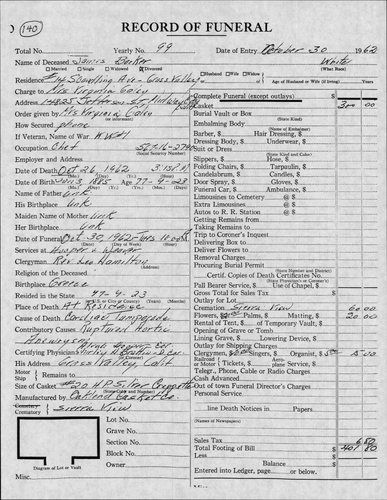 140
RECORD OF FUNERAL
Total No. Yearly No. 99 Date of Entry October 30 1962
Name of Deceased James Barker White
Married Single Widowed Divorced (What Race)
Residence Ave - Grass Valley Husband Wife Widow Age of Husband or Wife (if living)
Charge to Mrs Virginia Complete Funeral (except outlays) $
Address 14825 Jefferson St, Midway City Casket 300 00
Order given by Mrs Virginia Burial Vault or Box
(State Kind)
How Secured phone Embalming Body
(Name of Embalmer)
If Veteran, of War WW 1 Barber, $ Hair Dressing, $
Occupation Chef Dressing Body, $ Underwear, $
(Social Security Number) Suit or Dress
(State Kind and Color)
Employer and Address Slippers, $ Hose, $
Date of Death Oct 26, 1962 Folding Chairs, $ Tarpaulin, $
Candelabrum, $ Candles, $
Date of Birth 3, 1885 Age 77-4-23 Door Spray, $ Gloves, $
Name of Father Unk Funeral Car, $ Ambulance, $
His Birthplace Unk Limousines to Cemetery @ $
Extra Limousines @ $
Maiden Name of Mother Unk Autos to R. R. Station @ $
Her Birthplace Unk Getting Remains from
Taking Remains to
Date of Funeral Oct 30, 1962 - Tues 10:00 A Trip to Coroner's Inquest
Services at Hooper & Weaver Delivering Box to
Deliver Flowers to
Clergyman Rev Leo Hamilton Removal Charges
Religion of the Deceased Procuring Burial Permit
Birthplace Greece Certif. Copies of Death Certificates No.
Pall Bearer Service, $ Use of Chapel, $
Resided in the State 47-4-23 Gross Total for Sales Tax
Place of Death At Residence Outlay for Lot
Cemetery Sierra View 60 00
Cause of Death Cardiac Tamponade Flowers, $ Palms, $ Matting, $ 20 00
Contributory Causes Ruptured Aortic Rental of Tent, $ of Temporary Vault, $
Aneurysm Opening of Grave or Tomb
Lining Grave, $ Lowering Device, $
Certifying Physician Outlay for Shipping Charges
His Address Grass Valley, Calif Clergyman, Singers, $ Organist, $ 5 15 00
Motor Ship Remains to Railroad Aero-plane Service, $ Tickets, $
Telegr., Phone, Cable or Radio Charges
Cash Advanced
Size of Casket #20 H.P. Silver Out of town Funeral Director's Charges
Manufactured by Oakland Casket Co Personal Service
Cemetery Crematory Sierra View
Lot No. line Death Notices in Papers
(Names of Newspapers)
Grave No.
Section No. Sales Tax 6 80
Block No. Total Footing of Bill 401 80
Less
Owner Balance
Diagram of Lot or Vault Entered into Ledger, page or below.
Misc.